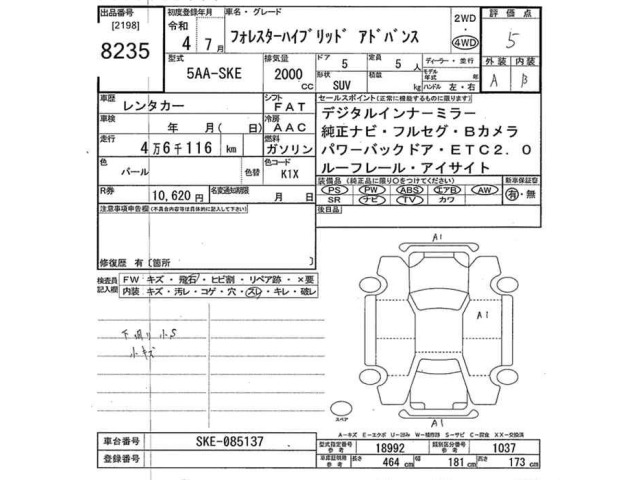 出品番号
[2198]
8235
初度登録年月
令和
4 7月
車名・グレード
フォレスターハイブリッド アドバンス
2WD
4WD
評価点
5
型式
5AA-SKE
排気量
2000
CC
ドア
5
定員
5人
形状
SUV
積載
kg
ディーラー・並行
モデル年式 年
ハンドル 左・右
外装 内装
A B
車歴
レンタカー
シフト
FAT
車検
年 月( )
冷房
AAC
走行
4万6千116 km
燃料
ガソリン
色
パール
色替
色コード
K1X
R券
10,620円
名変通知期限
月 日
セールスポイント(正常に機能するものに限ります)
デジタルインナーミラー
純正ナビ・フルセグ・Bカメラ
パワーバックドア・ETC2.0
ルーフレール・アイサイト
装備品(純正品に限り○をつけてください)
PS PW ABS エアB AW
SR ナビ TV カワ
新車保証書
有・無
後日品
注意事項申告欄(不具合内容は具体的に記入して下さい)
修復歴 有〔箇所 〕
検査員記入欄
FW キズ・飛石・ヒビ割・リペア跡・×要
内装 キズ・汚レ・コゲ・穴・スレ・キレ・破レ
下回り小S
小キズ
A1
A1
A1
スペア
A-キズ E-エクボ U-凹み W-補修跡 S-サビ C-腐食 XX-交換済
車台番号
SKE-085137
登録番号
型式指定番号 参考
18992
類別区分番号 参考
1037
車車検証規格 参考
長さ
464 cm
幅
181 cm
高さ
173 cm